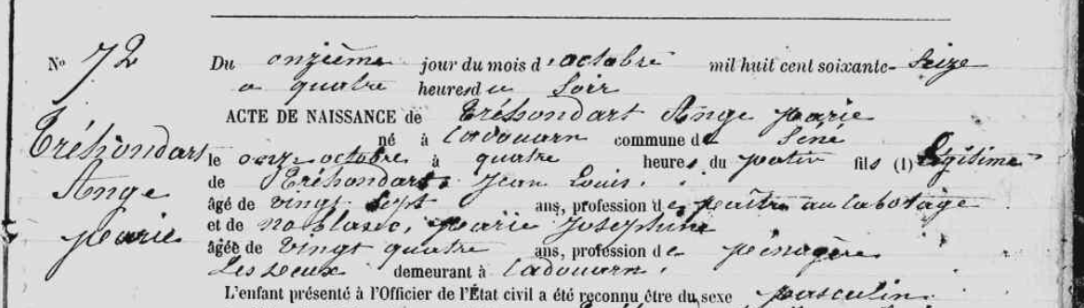 No 72
Du onzième jour du mois d'octobre mil huit cent soixante-seize
a quatre heures du Soir
ACTE DE NAISSANCE de Tréhondart Ange Marie
né à Cadouarn commune de Séné
Tréhondart
Ange
Marie
le onze octobre à quatre heures du matin fils (1) Légitime
de Tréhondart Jean Louis.
âgé de vingt sept ans, profession de maître au cabotage
et de Noblanc, Marie Josephine
âgée de vingt quatre ans, profession de ménagère
Les deux demeurant à Cadouarn.
L'enfant présenté à l'Officier de l'État civil a été reconnu être du sexe masculin